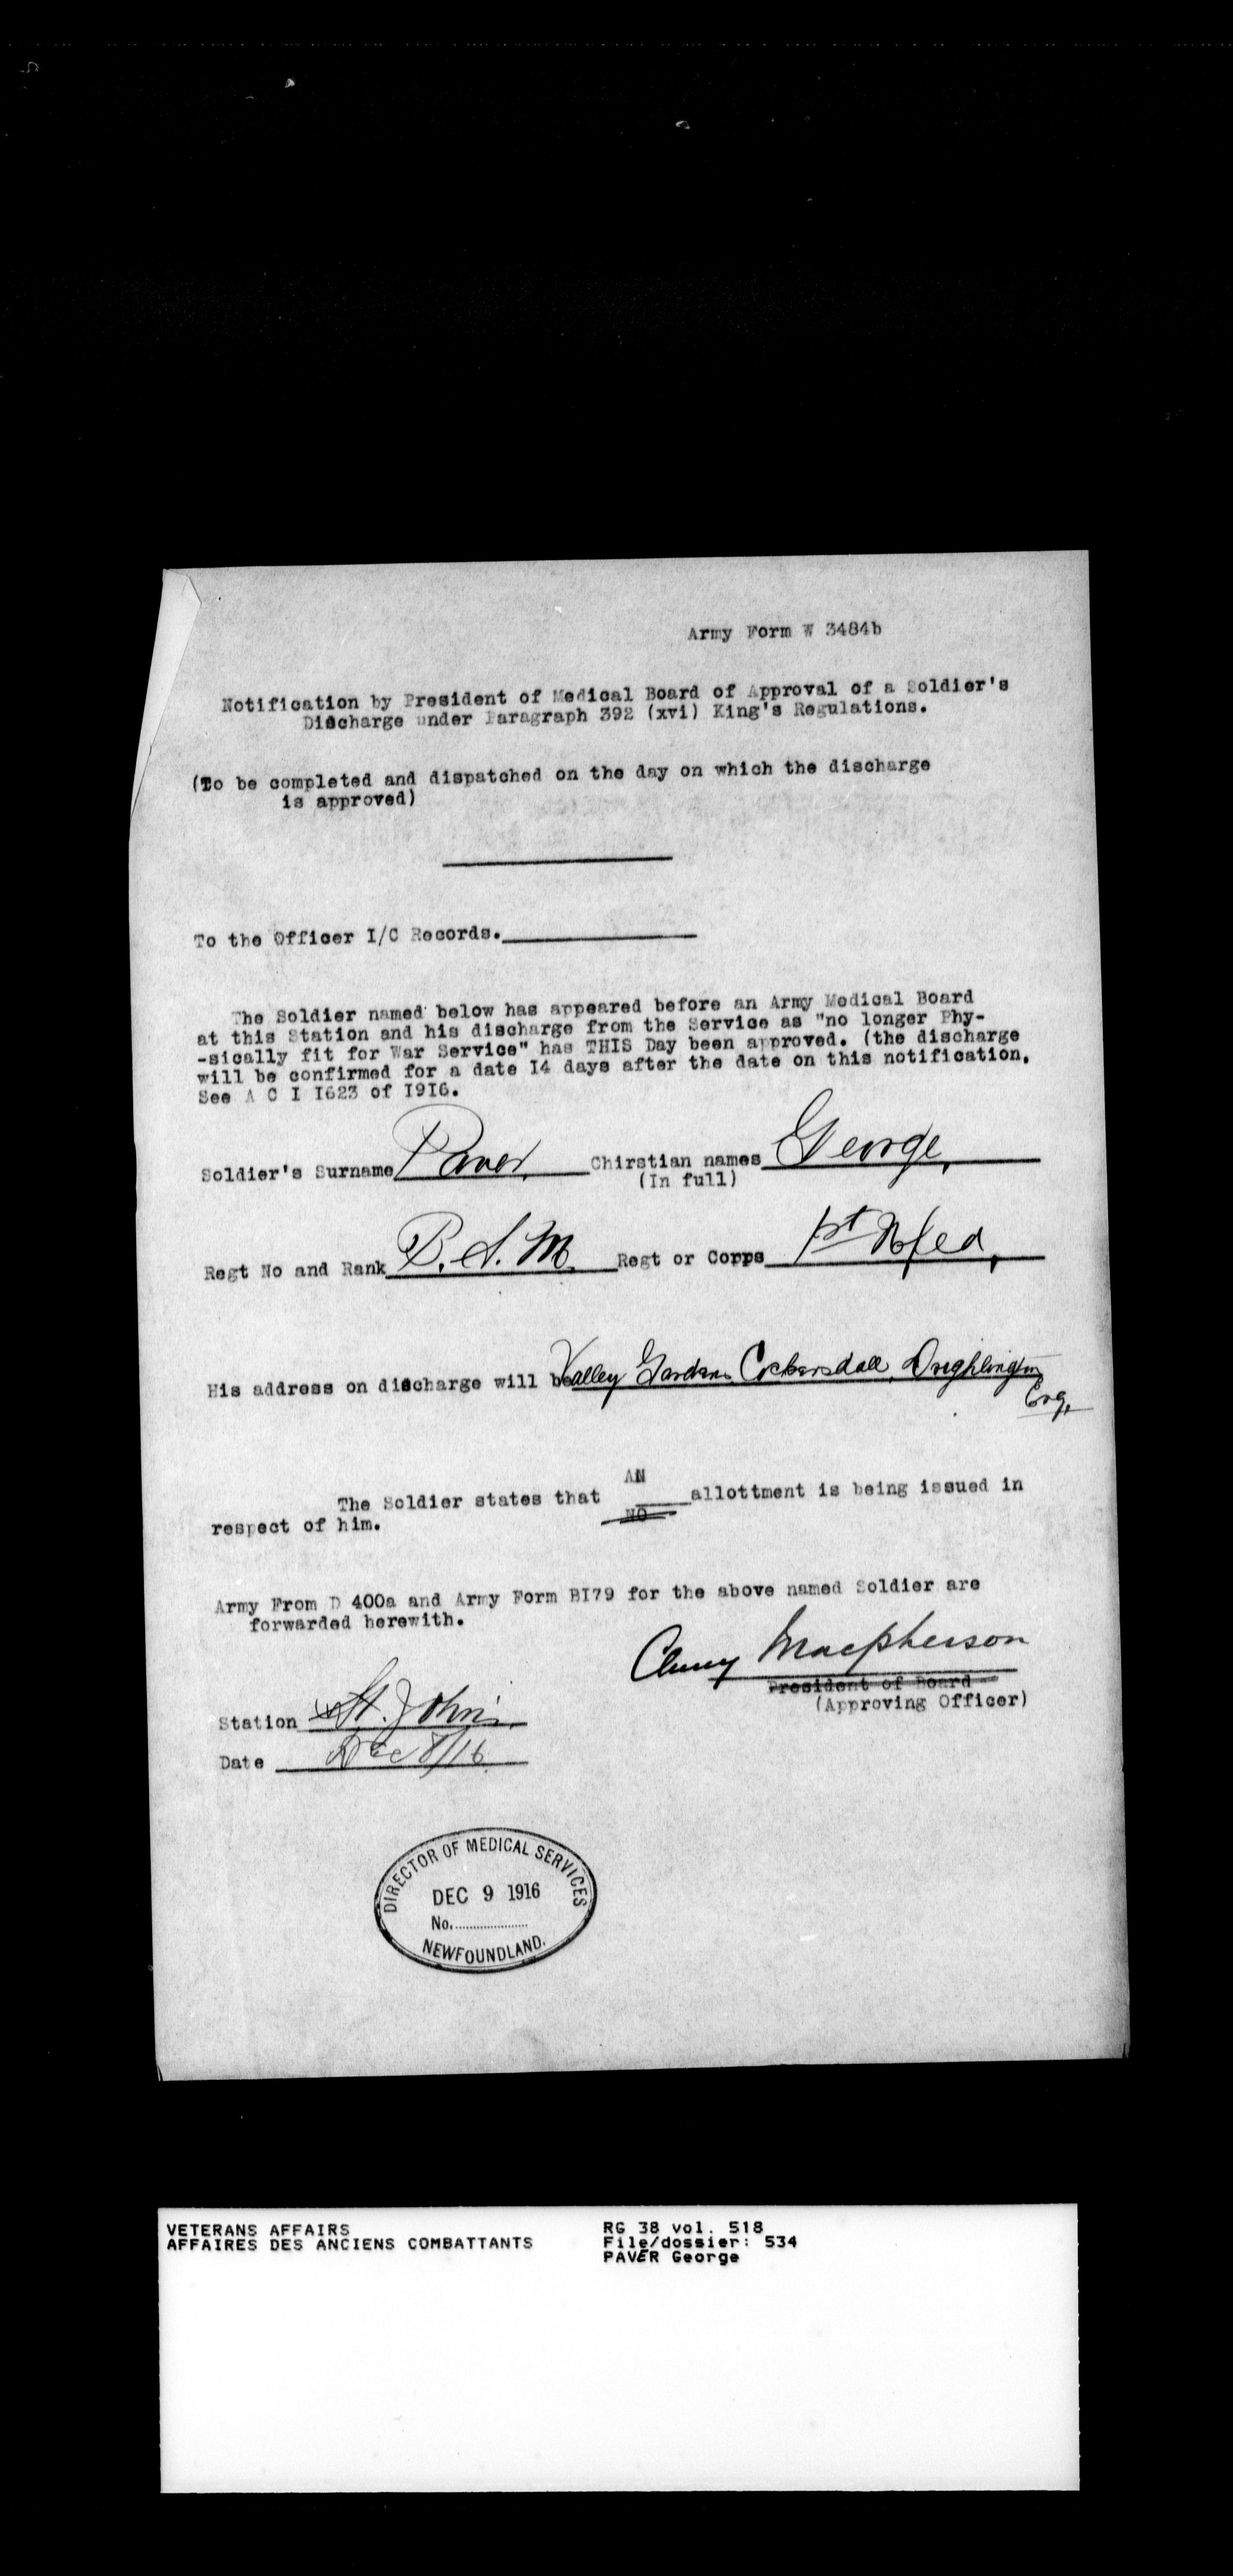 Army Form W 3484b
Notification by President of Medical Board of Approval of a Soldier's
Discharge under Paragraph 392 (xvi) King's Regulations.
(To be completed and dispatched on the day on which the discharge
is approved)
To the Officer I/C Records.
The Soldier named below has appeared before an Army Medical Board
at this Station and his discharge from the Service as "no longer Phy-
-sically fit for War Service" has THIS Day been approved. (the discharge
will be confirmed for a date I4 days after the date on this notification.
See A C I I623 of I9I6.
Soldier's Surname Paver, Chirstian names George,
(In full)
Regt No and Rank B.S.M. Regt or Corps 1st Nfld,
His address on discharge will be Valley Gardens Cockersdale, Drighlington
Eng,
AN
The Soldier states that allottment is being issued in
NO
respect of him.
Army From D 400a and Army Form BI79 for the above named Soldier are
forwarded herewith.
Cluny Macpherson
President of Board
(Approving Officer)
Station St. John's
Date Dec 8/16
DIRECTOR OF MEDICAL SERVICES
DEC 9 1916
No.
NEWFOUNDLAND.
VETERANS AFFAIRS RG 38 vol. 518
AFFAIRES DES ANCIENS COMBATTANTS File/dossier: 534
PAVER George